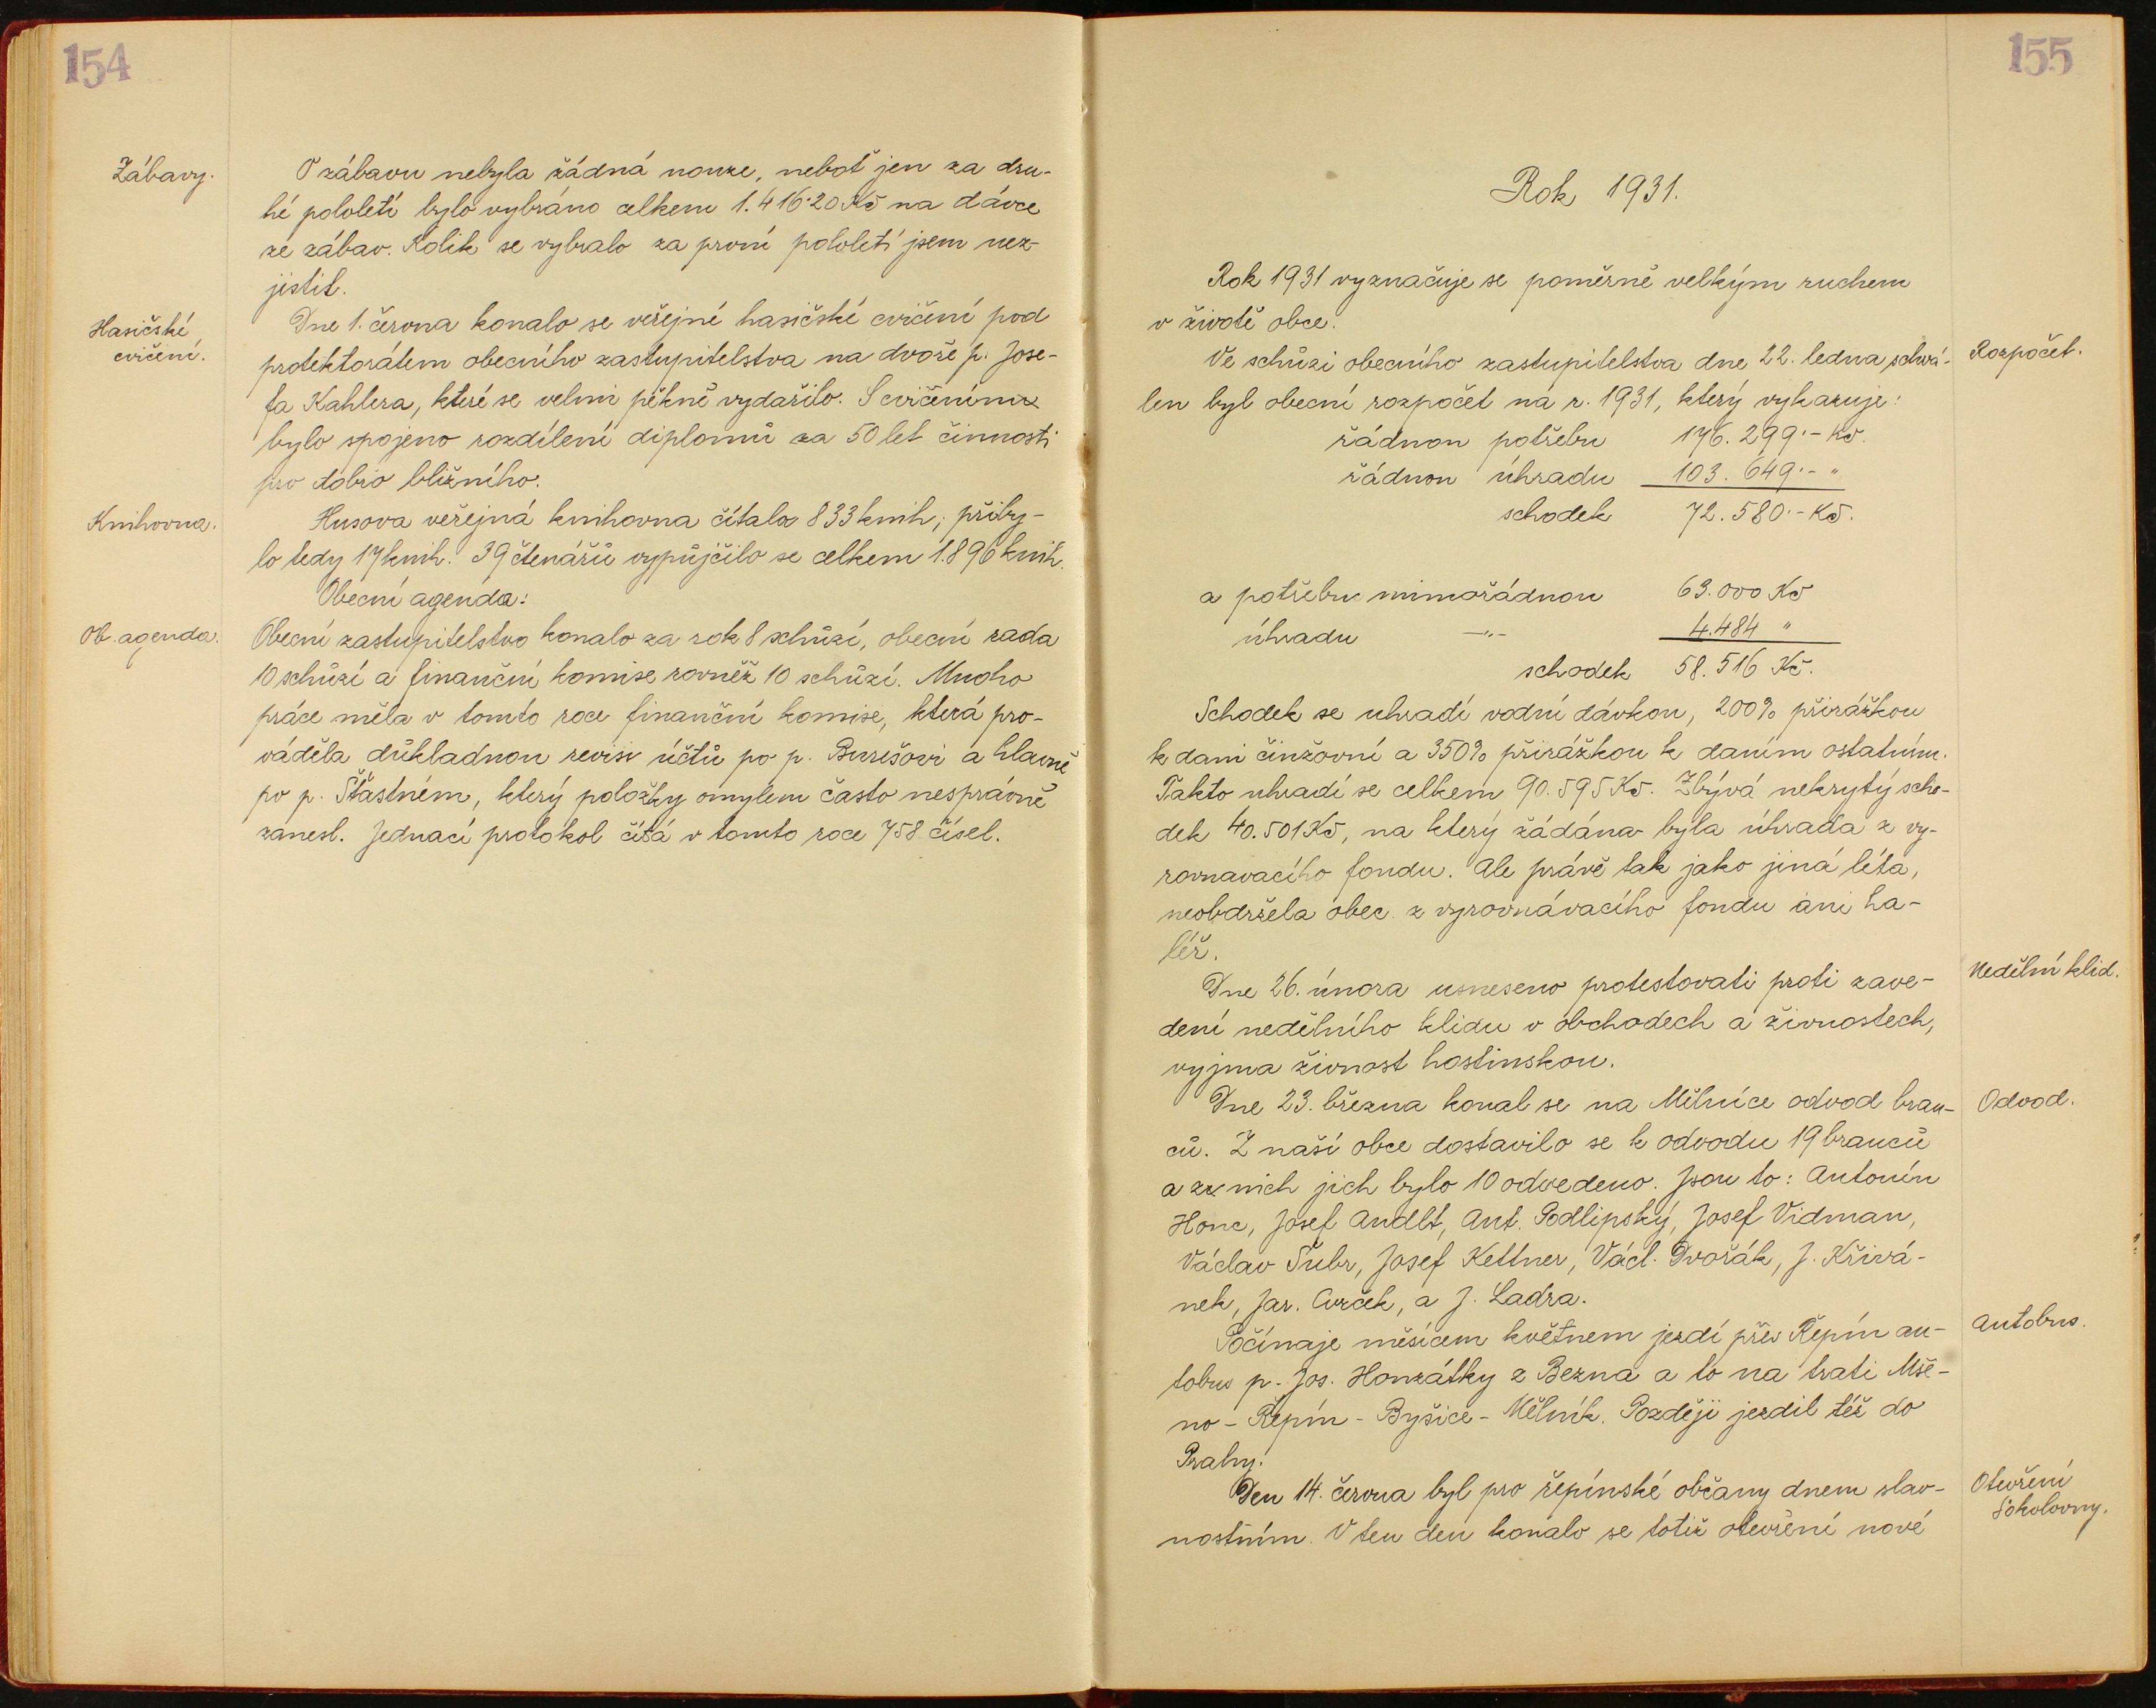 154
Zábavy.
O zábavu nebyla žádná nouze, neboť jen za dru-
hé pololetí bylo vybráno celkem 1.416·20 Kč na dávce
ze zábav. Kolik se vybralo za první pololetí jsem nez-
jistil.
Hasičské
cvičení.
Dne 1. června konalo se veřejné hasičské cvičení pod
protektorátem obecního zastupitelstva na dvoře p. Jose-
fa Kahlera, které se velmi pěkně vydařilo. S cvičením
bylo spojeno rozdílení diplomů za 50 let činnosti
pro dobro bližního.
Knihovna.
Husova veřejná knihovna čítala 833 knih; přiby-
lo tedy 17 knih. 39 čtenářů vypůjčilo se celkem 1.896 knih.
Obecní agenda:
Ob. agenda.
Obecní zastupitelstvo konalo za rok 8 schůzí, obecní rada
10 schůzí a finanční komise rovněž 10 schůzí. Mnoho
práce měla v tomto roce finanční komise, která pro-
váděla důkladnou revisi účtů po p. Burešovi a hlavně
po p. Šťastném, který položky omylem často nesprávně
zanesl. Jednací protokol čítá v tomto roce 758 čísel.
155
Rok 1931.
Rok 1931 vyznačuje se poměrně velkým ruchem
v životě obce.
Ve schůzi obecního zastupitelstva dne 22. ledna schvá-
Rozpočet.
len byl obecní rozpočet na r. 1931, který vykazuje:
řádnou potřebu 176.299·- Kč.
řádnou úhradu 103.649·- "
schodek 72.580·- Kč.
a potřebu mimořádnou 63.000 Kč
úhradu -"- 4.484 "
schodek 58.516 Kč.
Schodek se uhradí vodní dávkou, 200% přirážkou
k dani činžovní a 350% přirážkou k daním ostatním.
Takto uhradí se celkem 90.595 Kč. Zbývá nekrytý scho-
dek 40.501 Kč, na který žádána byla úhrada z vy-
rovnavacího fondu. Ale právě tak jako jiná léta,
neobdržela obec z vyrovnávacího fondu ani ha-
léř.
Nedělní klid.
Dne 26. února usneseno protestovati proti zave-
dení nedělního klidu v obchodech a živnostech,
vyjma živnost hostinskou.
Dne 23. března konal se na Mělníce odvod bran-
Odvod.
ců. Z naší obce dostavilo se k odvodu 19 branců
a z nich jich bylo 10 odvedeno. Jsou to: Antonín
Honc, Josef Andlt, Ant. Podlipský, Josef Vidman,
Václav Šubr, Josef Kettner, Václ. Dvořák, J. Křivá-
nek, Jar. Cvrček, a J. Ladra.
Počínaje měsícem květnem jezdí přes Řepín au-
Autobus.
tobus p. Jos. Honzátky z Bezna a to na trati Mše-
no - Řepín - Byšice - Mělník. Později jezdil též do
Prahy.
Den 14. června byl pro řepínské občany dnem slav-
Otevření
Sokolovny.
nostním. V ten den konalo se totiž otevření nové